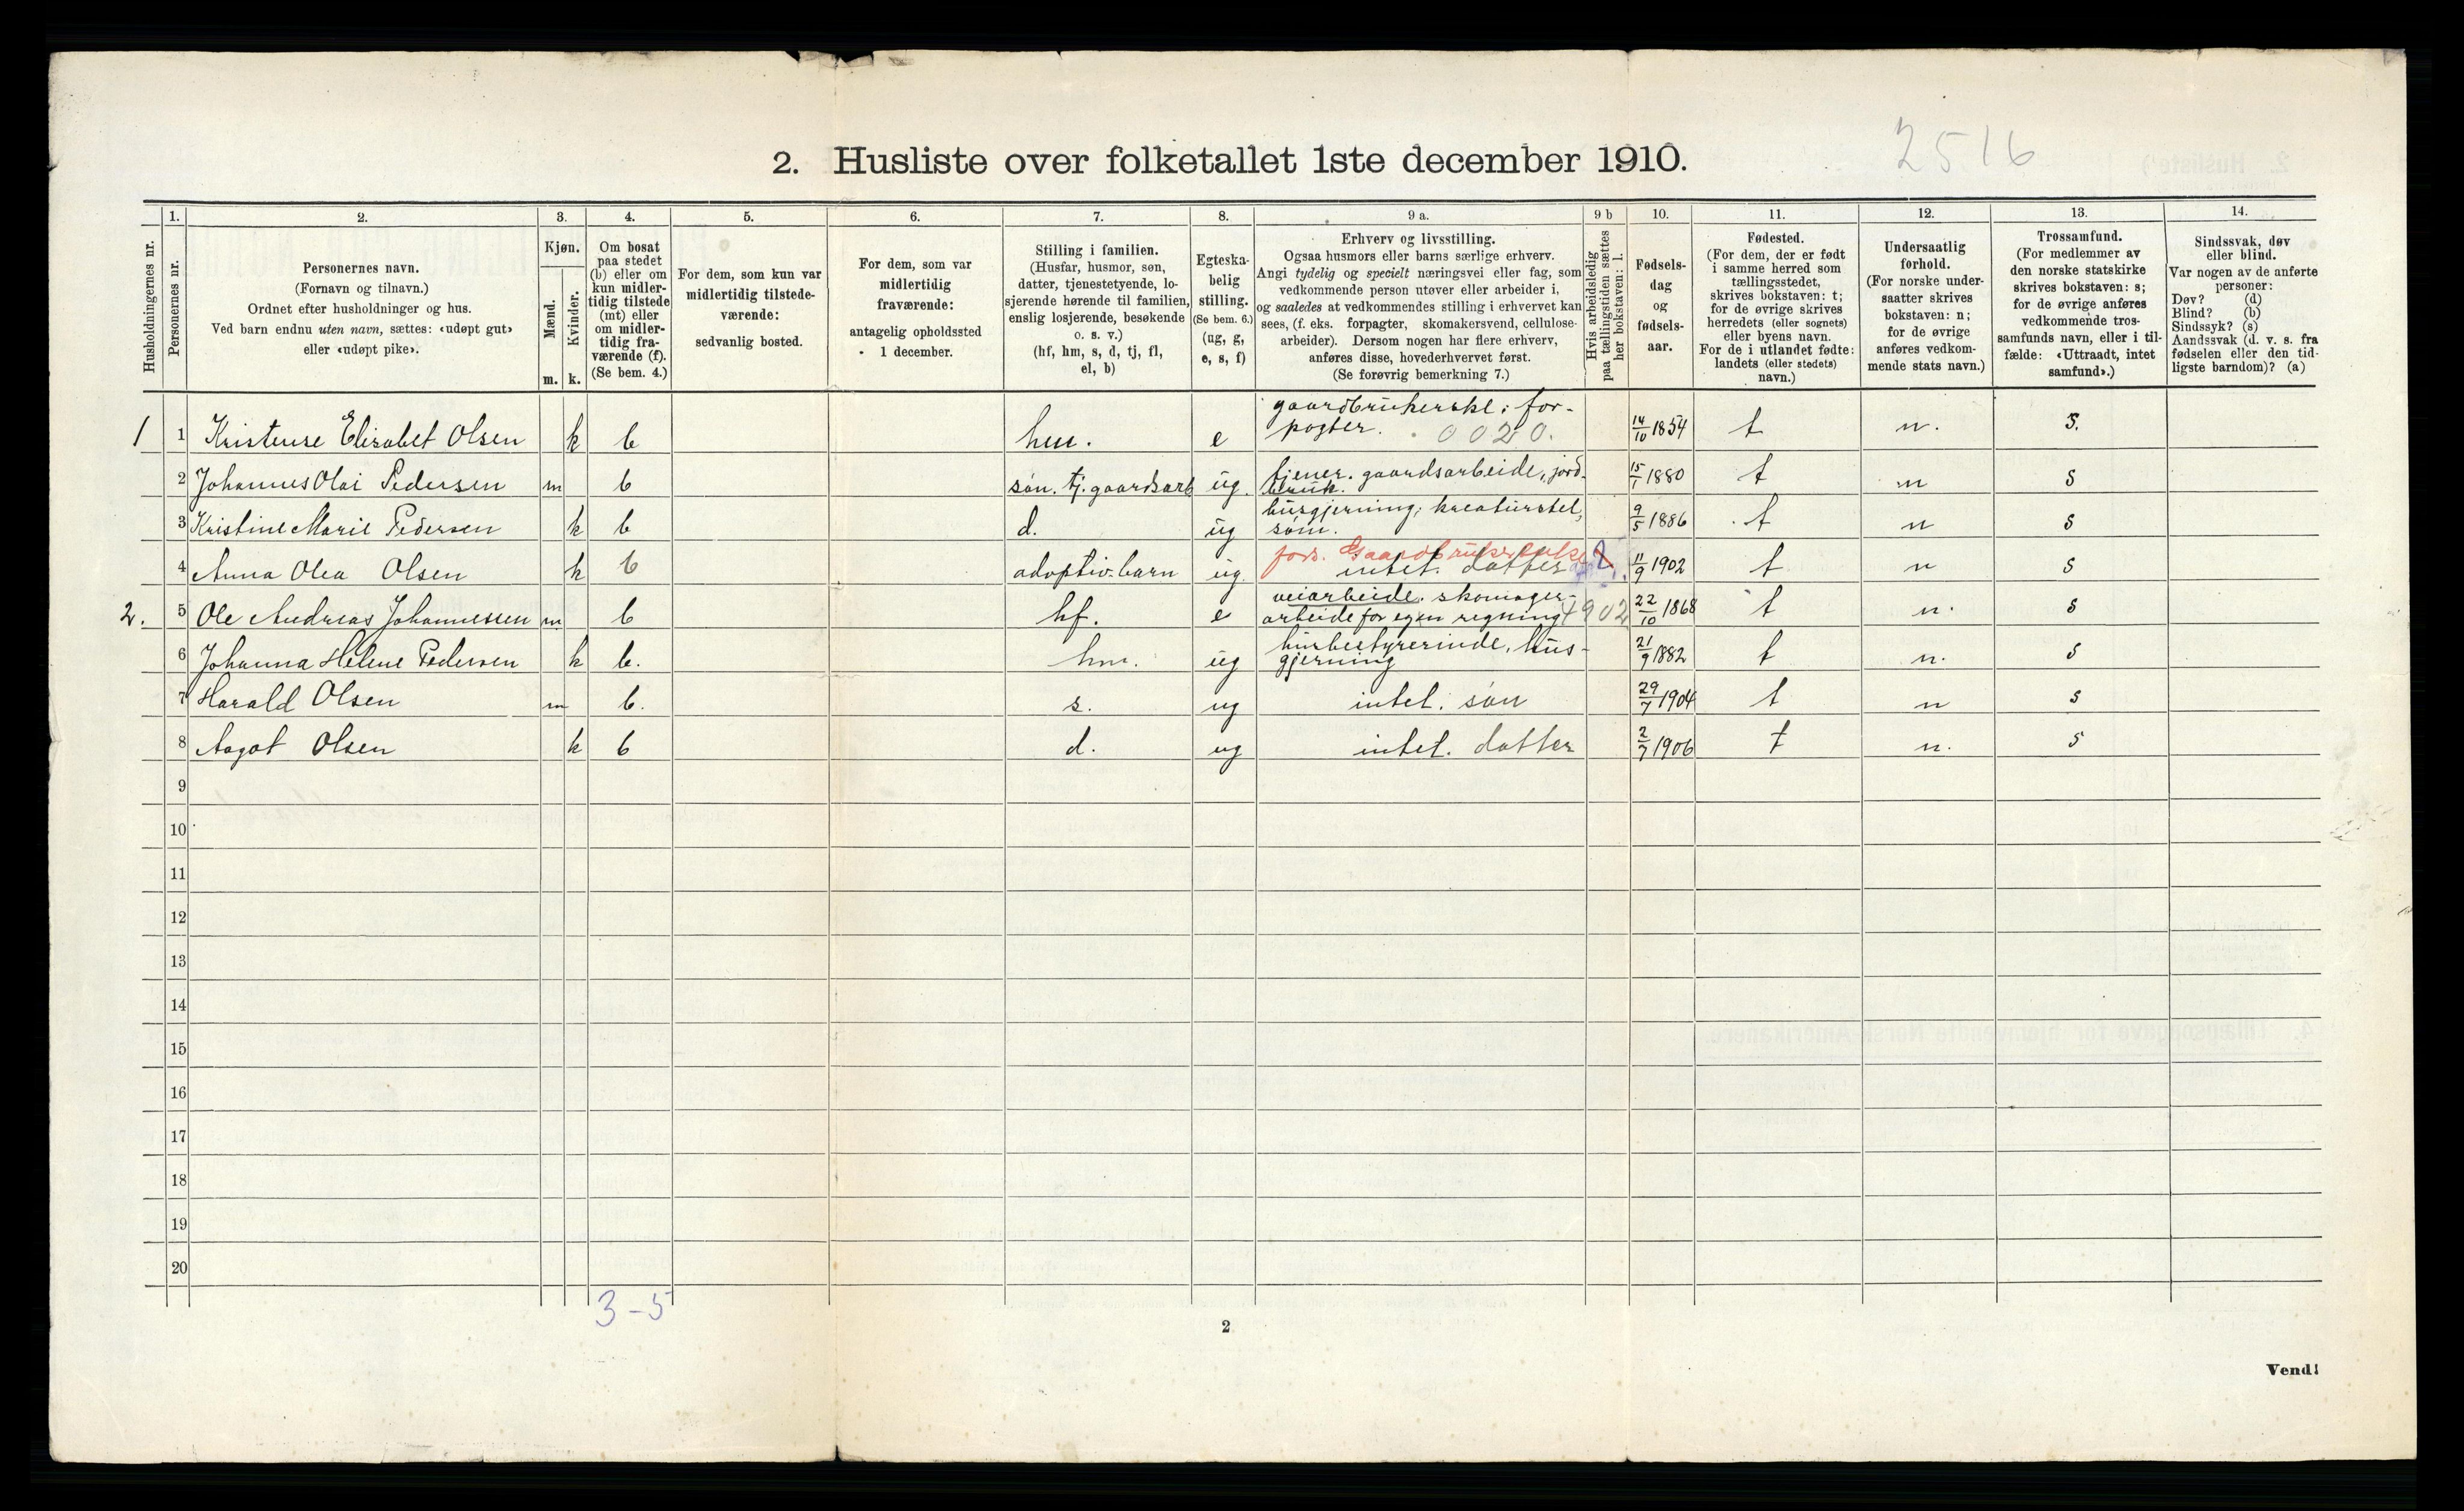 2. Husliste over folketallet 1ste december 1910.
2516
Husholdningernes nr.
1.
Personernes nr.
2.
Personernes navn.
(Fornavn og tilnavn.)
Ordnet efter husholdninger og hus.
Ved barn endnu uten navn, sættes: «udøpt gut»
eller «udøpt pike».
3.
Kjøn.
Mænd.
m.
Kvinder.
k.
4.
Om bosat
paa stedet
(b) eller om
kun midler-
tidig tilstede
(mt) eller
om midler-
tidig fra-
værende (f).
(Se bem. 4.)
5.
For dem, som kun var
midlertidig tilstede-
værende:
sedvanlig bosted.
6.
For dem, som var
midlertidig
fraværende:
antagelig opholdssted
1 december.
7.
Stilling i familien.
(Husfar, husmor, søn,
datter, tjenestetyende, lo-
sjerende hørende til familien,
enslig losjerende, besøkende
o. s. v.)
(hf, hm, s, d, tj, fl,
el, b)
8.
Egteska-
belig
stilling.
(Se bem. 6.)
(ug, g,
e, s, f)
9 a.
Erhverv og livsstilling.
Ogsaa husmors eller barns særlige erhverv.
Angi tydelig og specielt næringsvei eller fag, som
vedkommende person utøver eller arbeider i,
og saaledes at vedkommendes stilling i erhvervet kan
sees, (f. eks. forpagter, skomakersvend, cellulose-
arbeider). Dersom nogen har flere erhverv,
anføres disse, hovederhvervet først.
(Se forøvrig bemerkning 7.)
9 b
Hvis arbeidsledig
paa tællingstiden sættes
her bokstaven: l.
10.
Fødsels-
dag
og
fødsels-
aar.
11.
Fødested.
(For dem, der er født
i samme herred som
tællingsstedet,
skrives bokstaven: t;
for de øvrige skrives
herredets (eller sognets)
eller byens navn.
For de i utlandet fødte:
landets (eller stedets)
navn.)
12.
Undersaatlig
forhold.
(For norske under-
saatter skrives
bokstaven: n;
for de øvrige
anføres vedkom-
mende stats navn.)
13.
Trossamfund.
(For medlemmer av
den norske statskirke
skrives bokstaven: s;
for de øvrige anføres
vedkommende tros-
samfunds navn, eller i til-
fælde: «Uttraadt, intet
samfund».)
14.
Sindssvak, døv
eller blind.
Var nogen av de anførte
personer:
Døv? (d)
Blind? (b)
Sindssyk? (s)
Aandssvak (d. v. s. fra
fødselen eller den tid-
ligste barndom)? (a)
1 1 Kristense Elisabet Olsen k b hm. e gaardbrukerske; for-
pagter. 0020. 14/10 1854 t n. s.
2 Johannes Olai Pedersen m b søn. tj. gaardsarb ug. tjener. gaardsarbeide, jord-
bruk. 15/1 1880 t n s
3 Kristine Marie Pedersen k b d. ug husgjerning; kreaturstel,
søm. 9/5 1886 t n s
4 Anna Olea Olsen k b adoptiv-barn ug. fors. Gaardbrukerske
intet. datter 11/9 1902 t n s
2. 5 Ole Andreas Johannessen m b hf. e veiarbeide. skomager-
arbeide for egen regning 4902 22/10 1868 t n. s
6 Johanna Helene Pedersen k b. hm. ug husbestyrerinde, hus-
gjerning 21/9 1882 t n. s
7 Harald Olsen m b. s. ug intet. søn 29/7 1904 t n s
8 Aagot Olsen k b d. ug intet. datter 2/7 1906 t n. s
9
10
11
12
13
14
15
16
17
18
19
20
3-5
2
Vend!